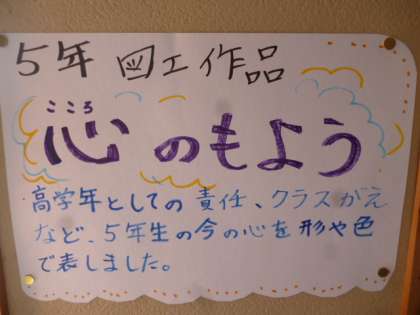 5年 図工作品
こころ
心のもよう
高学年としての責任、クラスがえ
など、5年生の今の心を形や色
で表しました。